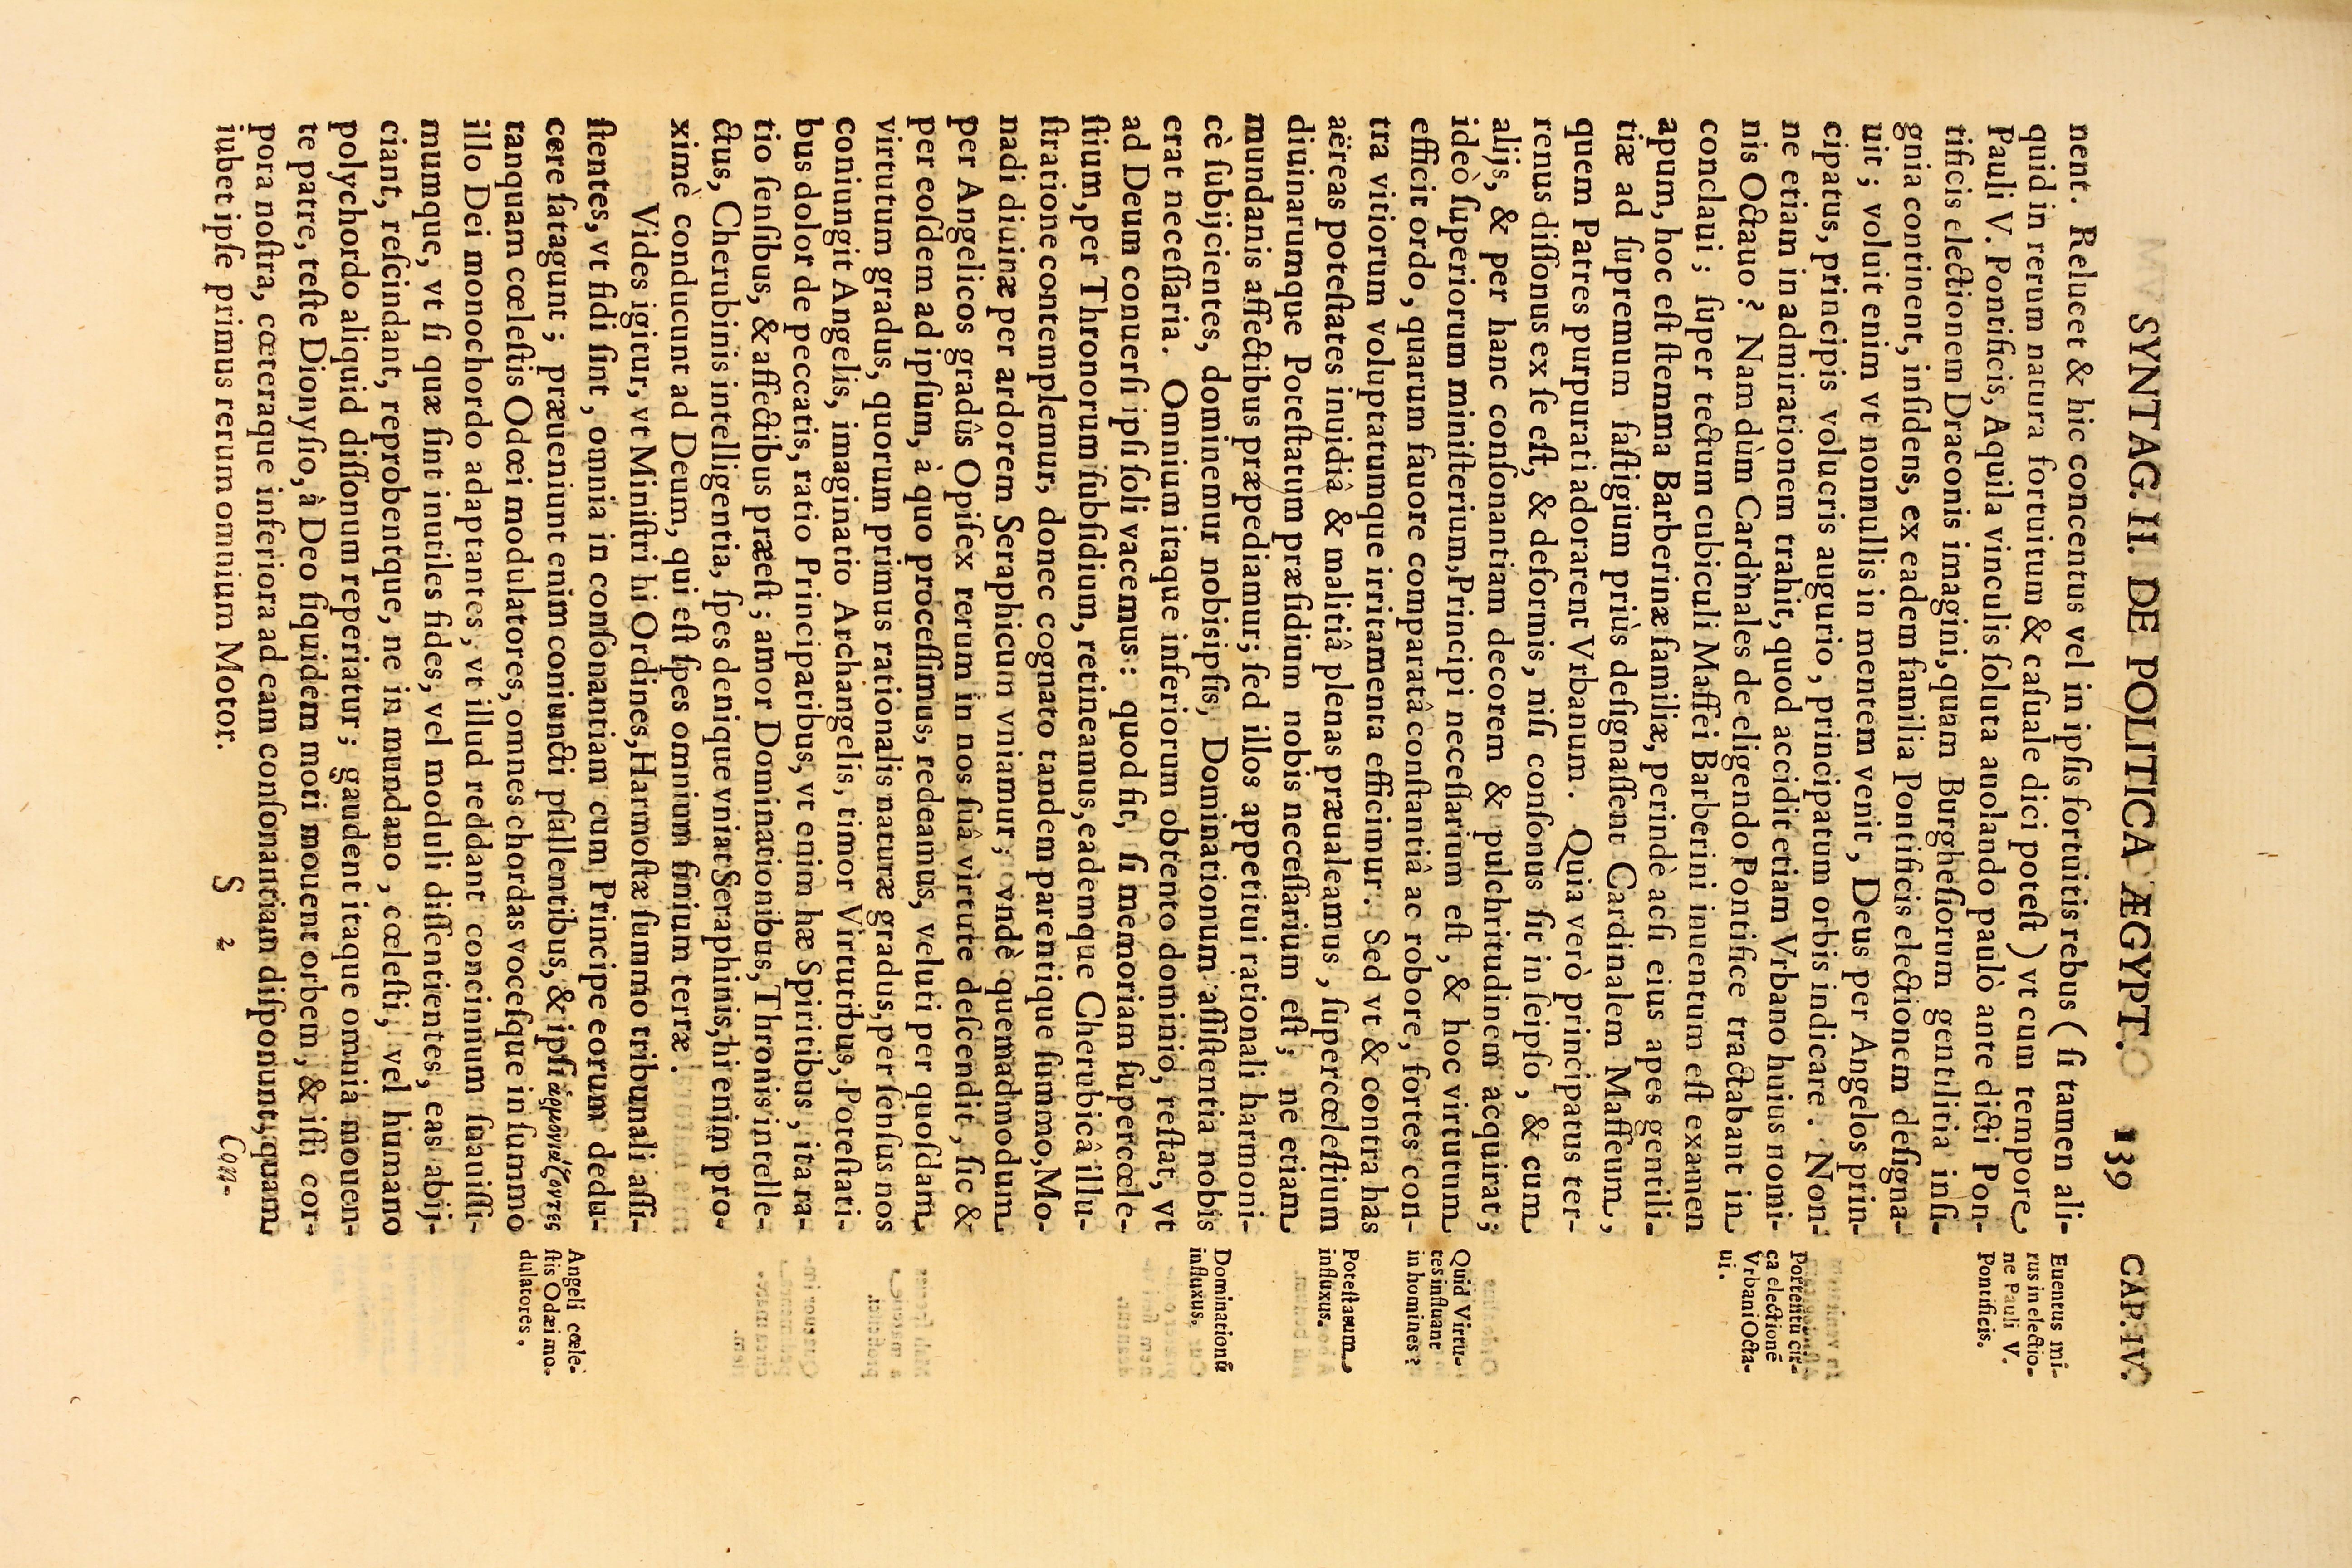 SYNTAG. II. DE POLITICA ÆGYPT. 139 CAP. IV.
nent. Relucet & hic concentus vel in ipſis fortuitis rebus ( ſi tamen ali-
quid in rerum natura fortuitum & caſuale dici poteſt ) vt cum tempore
Pauli V. Pontificis, Aquila vinculis ſoluta auolando paulò ante dicti Pon-
tificis electionem Draconis imagini, quam Burgheſiorum gentilitia inſi-
gnia continent, inſidens, ex eadem familia Pontificis electionem deſigna-
uit ; voluit enim vt nonnullis in mentem venit , Deus per Angelos prin-
cipatus, principis volucris augurio , principatum orbis indicare . Non-
ne etiam in admirationem trahit, quod accidit etiam Vrbano huius nomi-
nis Octauo? Nam dùm Cardinales de eligendo Pontifice tractabant in
conclaui ; ſuper tectum cubiculi Maffei Barberini inuentum eſt examen
apum, hoc eſt ſtemma Barberinæ familiæ, perindè ac ſi eius apes gentili-
tiæ ad ſupremum faſtigium priùs deſignaſſent Cardinalem Maffeum ,
quem Patres purpurati adorarent Vrbanum . Quia verò principatus ter-
renus diſſonus ex ſe eſt, & deformis, niſi conſonus fit in ſeipſo , & cum
alijs, & per hanc conſonantiam decorem & pulchritudinem acquirat ;
ideò ſuperiorum miniſterium, Principi neceſſarium eſt , & hoc virtutum
efficit ordo, quarum fauore comparatâ conſtantiâ ac robore, fortes con-
tra vitiorum voluptatumque irritamenta efficimur. Sed vt & contra has
aëreas poteſtates inuidiâ & malitiâ plenas præualeamus , ſupercœleſtium
diuinarumque Poteſtatum præſidium nobis neceſſarium eſt ; ne etiam
mundanis affectibus præpediamur; ſed illos appetitui rationali harmoni-
cè ſubijcientes, dominemur nobisipſis, Dominationum aſſiſtentia nobis
erat neceſſaria . Omnium itaque inferiorum obtento dominio, reſtat, vt
ad Deum conuerſi ipſi ſoli vacemus : quod fit, ſi memoriam ſupercœle-
ſtium, per Thronorum ſubſidium, retineamus, eademque Cherubicâ illu-
ſtratione contemplemur, donec cognato tandem parentique ſummo, Mo-
nadi diuinæ per ardorem Seraphicum vniamur ; vndè quemadmodum
per Angelicos gradûs Opifex rerum in nos ſuâ virtute deſcendit , ſic &
per eoſdem ad ipſum, à quo proceſſimus, redeamus, veluti per quoſdam
virtutum gradus, quorum primus rationalis naturæ gradus, per ſenſus nos
coniungit Angelis, imaginatio Archangelis, timor Virtutibus, Poteſtati-
bus dolor de peccatis, ratio Principatibus, vt enim hæ Spiritibus , ita ra-
tio ſenſibus, & affectibus præeſt ; amor Dominationibus, Thronis intelle-
ctus, Cherubinis intelligentia, ſpes denique vniat Seraphinis, hi enim pro-
ximè conducunt ad Deum, qui eſt ſpes omnium finium terræ .
Vides igitur, vt Miniſtri hi Ordines, Harmoſtæ ſummo tribunali aſſi-
ſtentes, vt fidi ſint , omnia in conſonantiam cum Principe eorum dedu-
cere ſatagunt ; præueniunt enim coniuncti pſallentibus, & ipſi ἁρμονίζοντες
tanquam cœleſtis Odœi modulatores, omnes chordas voceſque in ſummo
illo Dei monochordo adaptantes , vt illud reddant concinnum ſuauiſſi-
mumque, vt ſi quæ ſint inutiles fides, vel moduli diſſentientes, eas abij-
ciant, reſcindant, reprobentque, ne in mundano , cœleſti, vel humano
polychordo aliquid diſſonum reperiatur ; gaudent itaque omnia mouen-
te patre, teſte Dionyſio, à Deo ſiquidem moti mouent orbem , & iſti cor-
pora noſtra, cœteraque inferiora ad eam conſonantiam diſponunt, quam
iubet ipſe primus rerum omnium Motor.
S 2 Con-
Euentus mi-
rus in electio-
ne Pauli V.
Pontificis.
Portentū cir-
ca electionē
Vrbani Octa-
ui .
Quid Virtu-
tes influant
in homines ?
Poteſtatum
influxus.
Dominationū
influxus.
Angeli cœle-
ſtis Odæi mo-
dulatores .